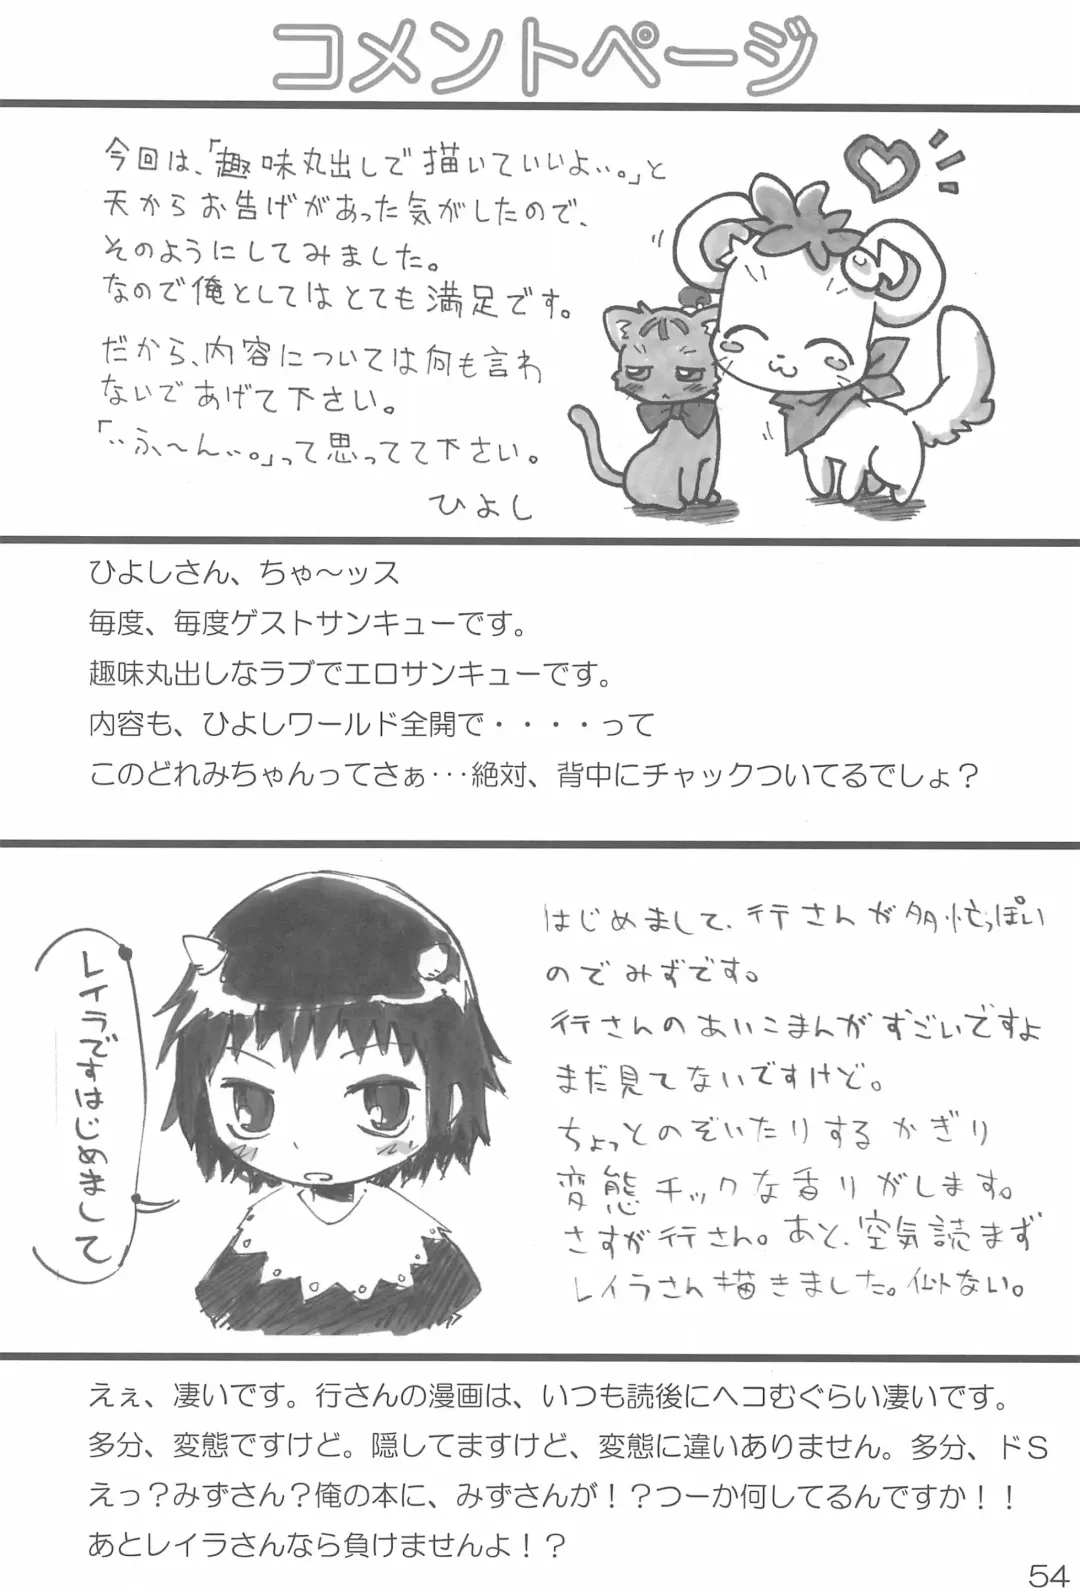 コメントページ
今回は、「趣味丸出しで描いていいよ…。」と
天からお告げがあった気がしたので、
そのようにしてみました。
なので俺としてはとても満足です。
だから、内容については何も言わ
ないであげて下さい。
「…ふ〜ん…。」って思ってて下さい。
ひよし
ひよしさん、ちゃ〜ッス
毎度、毎度ゲストサンキューです。
趣味丸出しなラブでエロサンキューです。
内容も、ひよしワールド全開で・・・・って
このどれみちゃんってさぁ･･･絶対、背中にチャックついてるでしょ？
レイラですはじめまして
はじめまして、行さんが多忙っぽい
のでみずです。
行さんのあいこまんがすごいですよ
まだ見てないですけど。
ちょっとのぞいたりするかぎり
変態チックな香りがします。
さすが行さん。あと、空気読まず
レイラさん描きました。似ない。
えぇ、凄いです。行さんの漫画は、いつも読後にヘコむぐらい凄いです。
多分、変態ですけど。隠してますけど、変態に違いありません。多分、ドＳ
えっ？みずさん？俺の本に、みずさんが！？つーか何してるんですか！！
あとレイラさんなら負けませんよ！？
54